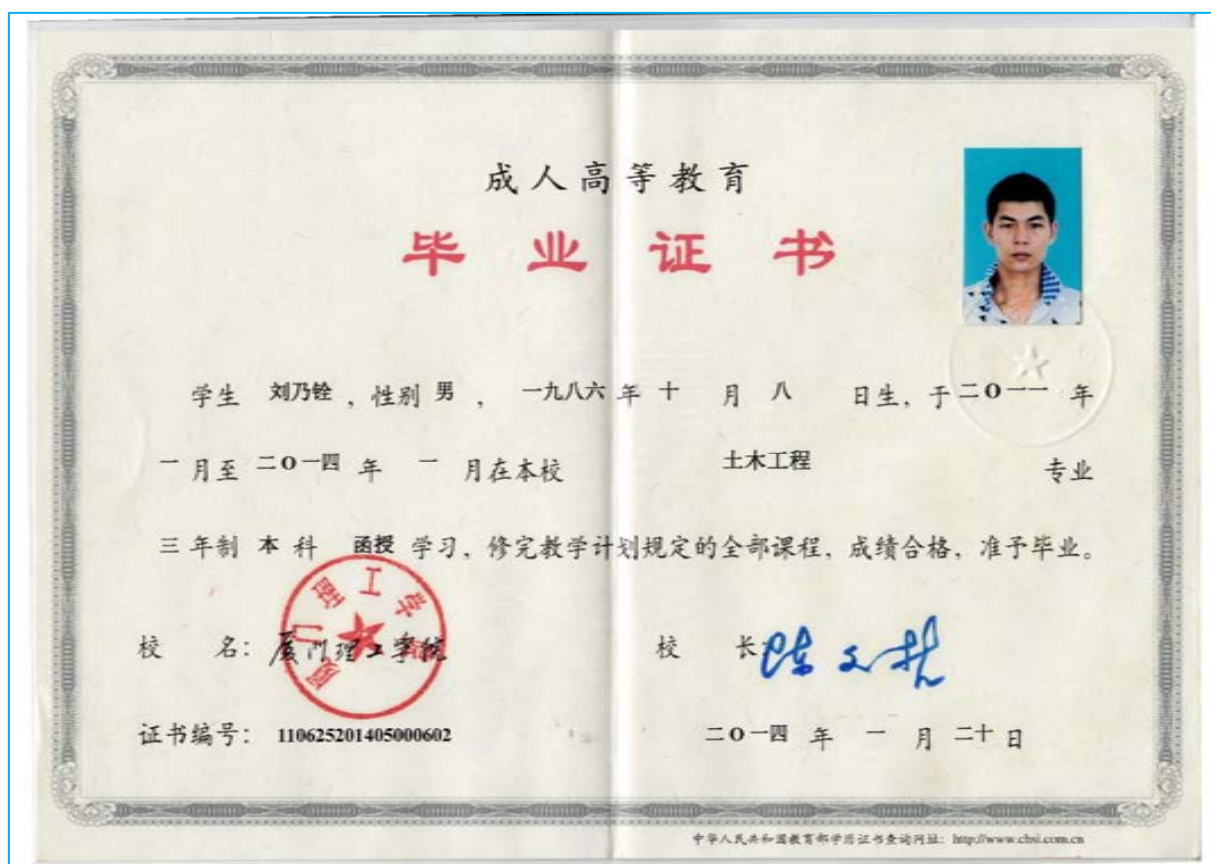 成人高等教育
毕业证书
学生 刘乃铨 ，性别 男 ， 一九八六 年 十 月 八 日生，于 二O一一 年
一 月至 二O一四 年 一 月在本校 土木工程 专业
三 年制 本 科 函授 学习，修完教学计划规定的全部课程，成绩合格，准予毕业。
厦门理工学院
校 名：厦门理工学院
校 长：
证书编号：110625201405000602
二O一四 年 一 月 二十 日
中华人民共和国教育部学历证书查询网址：http://www.chsi.com.cn